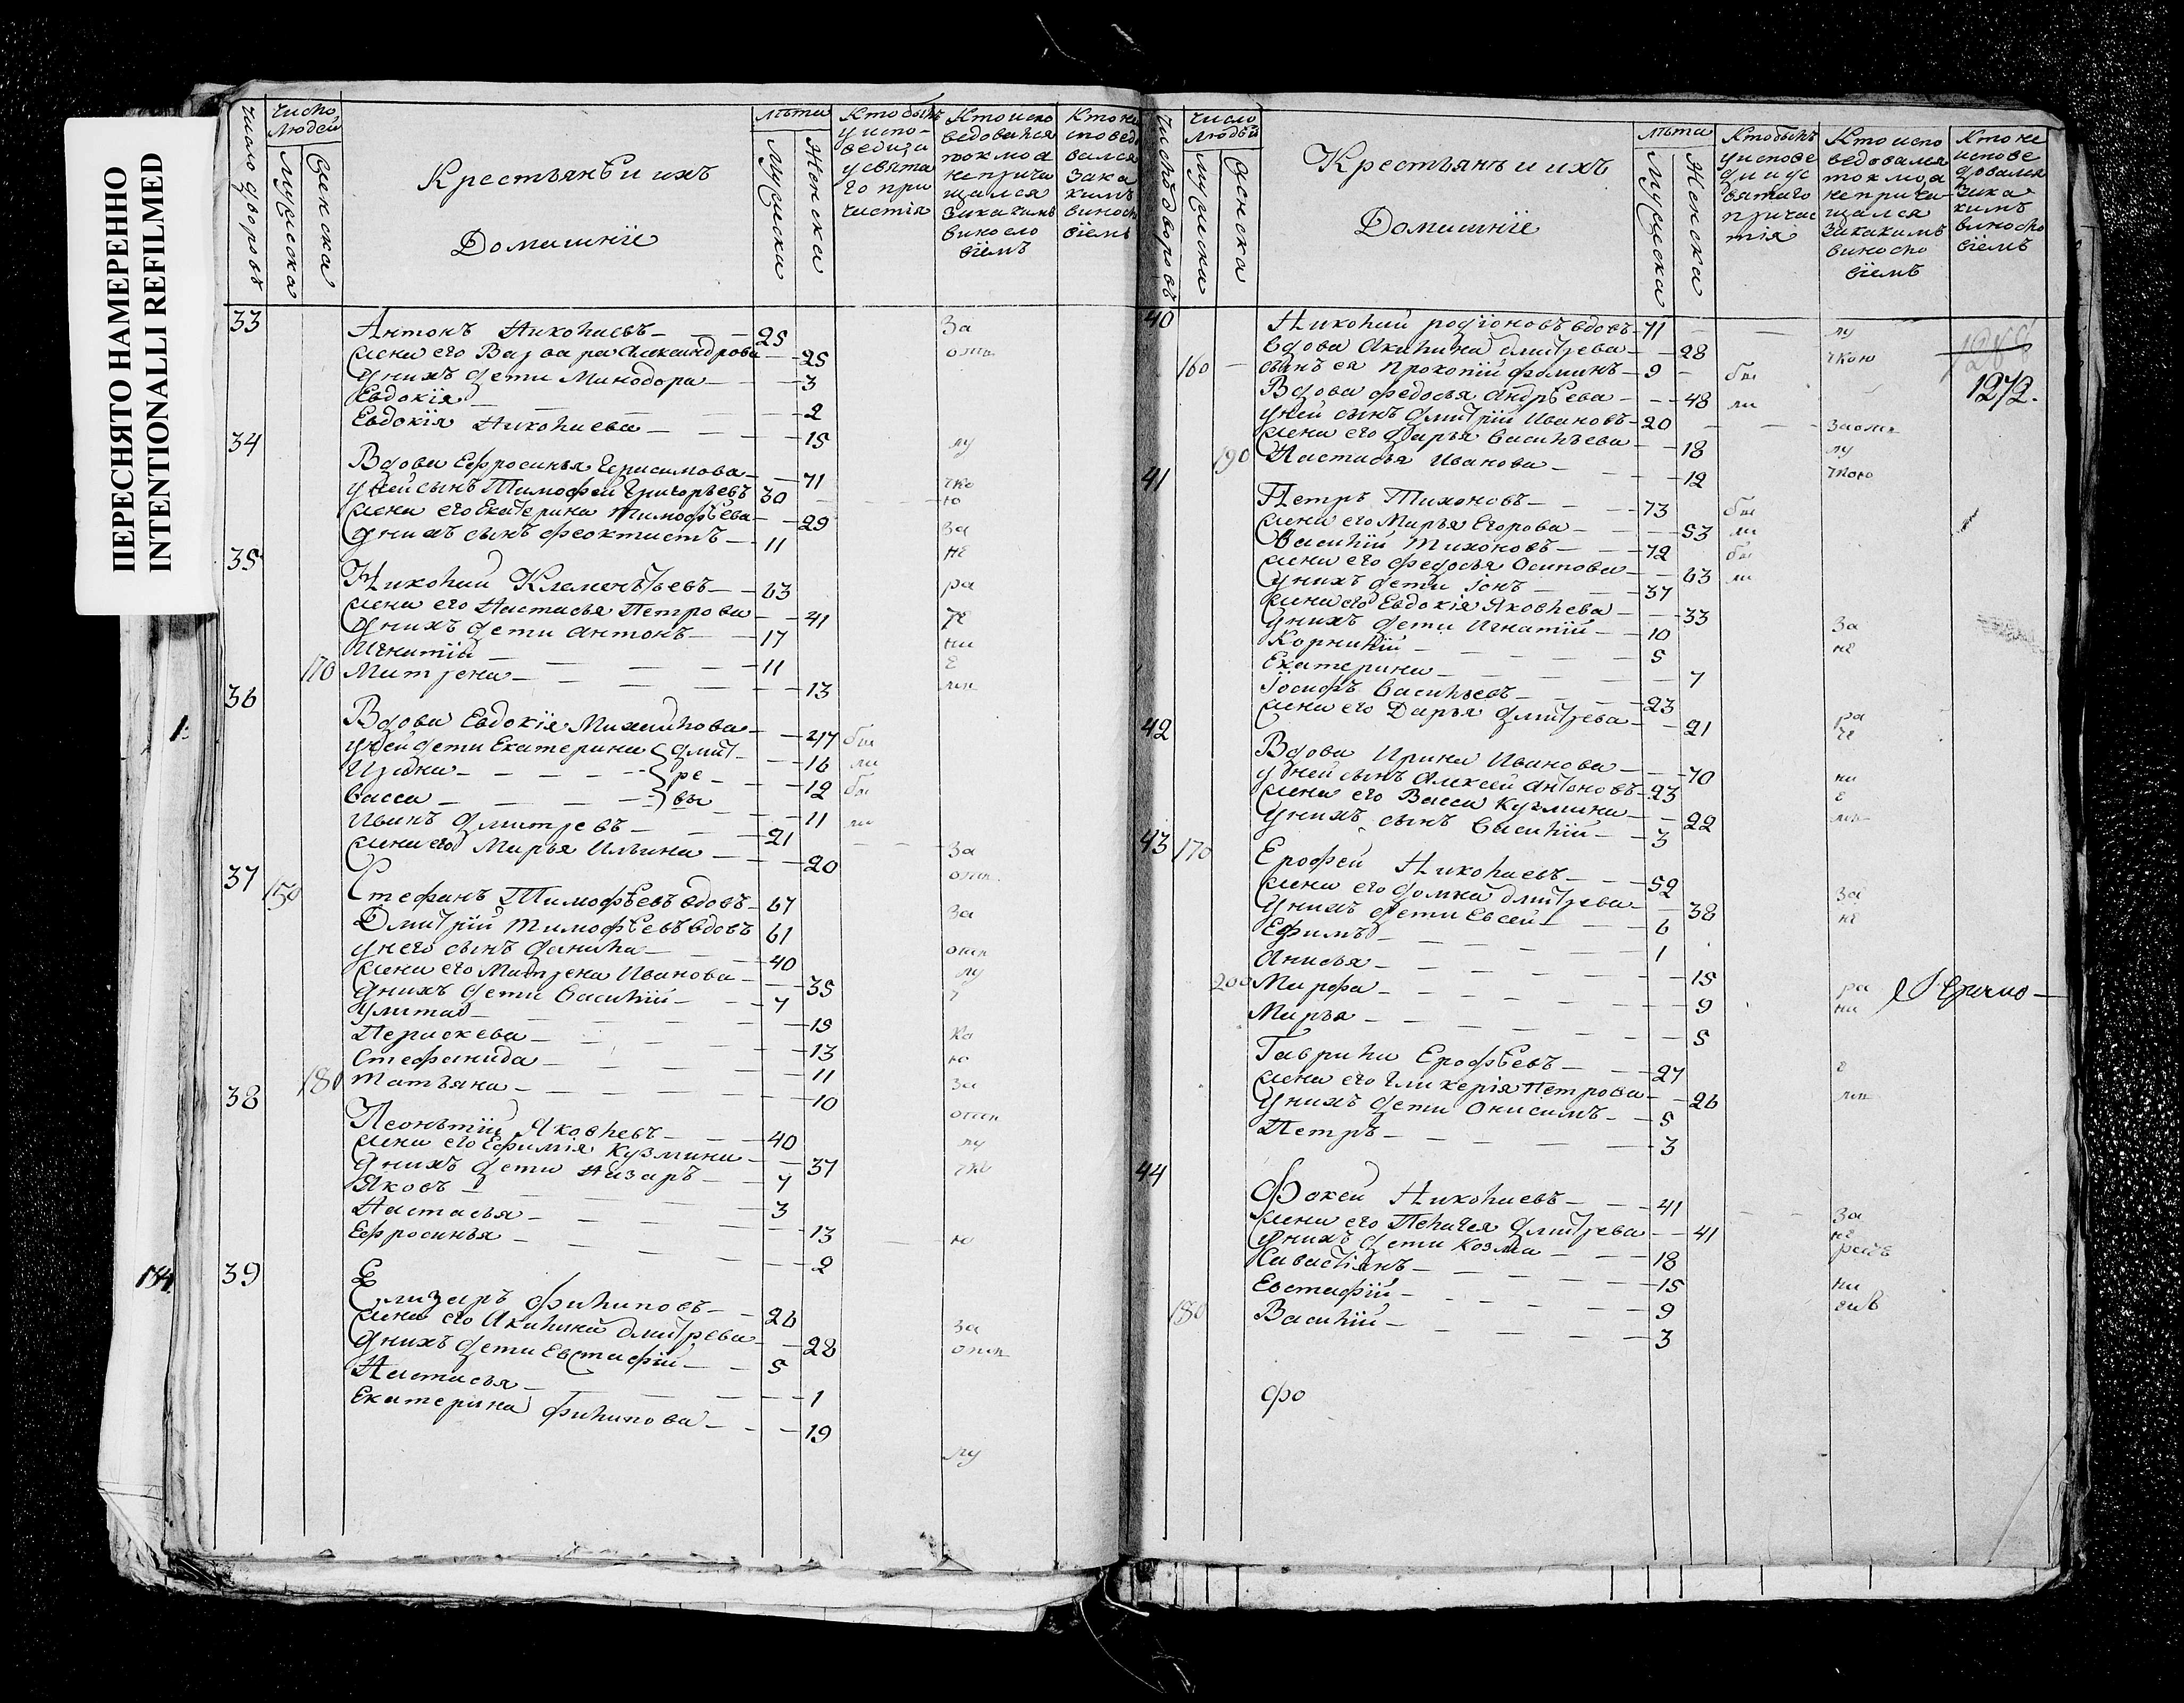 ПЕРЕСНЯТО НАМЕРЕННО
INTENTIONALLI REFILMED
Число дворовъ
Число людей
Мужеска
Женска
Крестьянѣ и ихъ
Домашнїе
лѣта
Мужеска
Женска
Кто былъ
у испо-
веди, и
у свята
го при
частїя
Кто испо
ведовался
токмо а
не прича
щался
За какимъ
виносло
вїемъ
Кто не
споведо
вался
За ка
кимъ
виносл
вїемъ
33
Антонъ Николаевъ 25
Жена его Варвара Александрова 25
У нихъ дети Минодора 3
Евдокїя 2
Евдокїя Николаева 15
34
Вдова Ефросинья Герасимова 71
У ней сынъ Тимофей Григорьевъ 30
Жена его Екатерина Тимофѣева 29
У нихъ сынъ Феоктистъ 11
35
Николай Клементьевъ 63
Жена его Настасья Петрова 41
У нихъ дети Антонъ 17
Игнатїй 11
170 Матрена 13
36
Вдова Евдокїя Михаилова 47
У ней дети Екатерина Дмит 16
Ирина ре 12
Васса вы 11
Иванъ Дмитревъ 21
Жена его Марья Ильина 20
37 150
Стефанъ Тимофѣевъ вдовъ 67
Дмитрїй Тимофѣевъ вдовъ 61
У него сынъ Данила 40
Жена его Матрена Иванова 35
У нихъ дети Василїй 7
Улита 19
Параскева 13
Стефанида 11
180 Татьяна 10
38
Леонътїй Яковлевъ 40
Жена его Ефимїя Кузмина 37
У нихъ дети Назаръ 7
Яковъ 3
Настасья 13
Ефросинья 2
39
Елизаръ Филиповъ 26
Жена его Акилина Дмитрева 28
У нихъ дети Евстафїй 5
Настасья 1
Екатерина Филипова 19
Число дворовъ
Число людей
Мужеска
Женска
Крестьянѣ и ихъ
Домашнїе
лѣта
Мужеска
Женска
Кто былъ
у испове
ди и у с
вятаго
причас
тїя
Кто испо
ведовался
токмо а
не прича
щался
За какимъ
виносло
вїемъ
Кто не
испове
довался
За ка
кимъ
виносло
вїемъ
40
Николай Родїоновъ вдовъ 71
Вдова Акилина Дмитрева 28
160 Сынъ ея Прокопїй Фоминъ 9
1272.
Вдова Федосья Андрѣева 48
У ней сынъ Дмитрїй Ивановъ 20
Жена его Дарья Васильева 18
190 Настасья Иванова 12
41
Петръ Тихоновъ 73
Жена его Марья Егорова 53
Василїй Тихоновъ 72
Жена его Федосья Осипова 63
У нихъ дети Іонъ 37
Жена его Евдокїя Яковлева 33
У нихъ дети Игнатїй 10
Корнилїй 5
Екатерина 7
Їосифъ Васильевъ 23
Жена его Дарья Дмитрева 21
42
Вдова Ирина Иванова 70
У ней сынъ Алексей Антоновъ 23
Жена его Васса Кузмина 22
У нихъ сынъ Василїй 3
43 170
Ерофей Николаевъ 52
Жена его Домна Дмитрева 38
У нихъ дети Евсей 6
Ефимъ 1
Анисья 15
200 Марфа 9
Марья 5
Гаврила Ерофѣевъ 27
Жена его Гликерїя Петрова 26
У нихъ дети Онисимъ 5
Петръ 3
44
Фокей Николаевъ 41
Жена его Пелагея Дмитрева 41
У нихъ дети Козма 18
Савастїянъ 15
Евстафїй 9
180 Василїй 3
фо